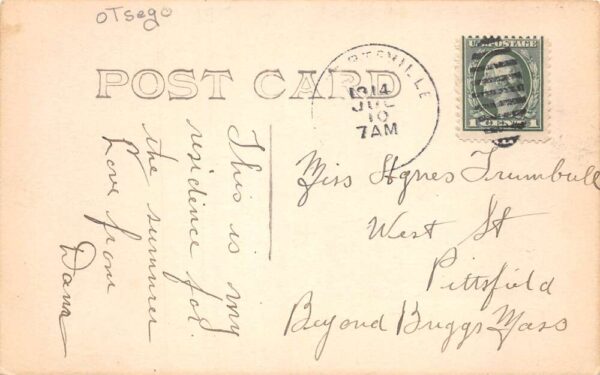 OTsego
POST CARD
U.S. POSTAGE
1 CENT 1
1914
JUL
10
7AM
This is my
residence for
the summer
Love from
Dana
Miss Agnes Trumbull
West St
Pittsfield
Beyond Briggs Mass